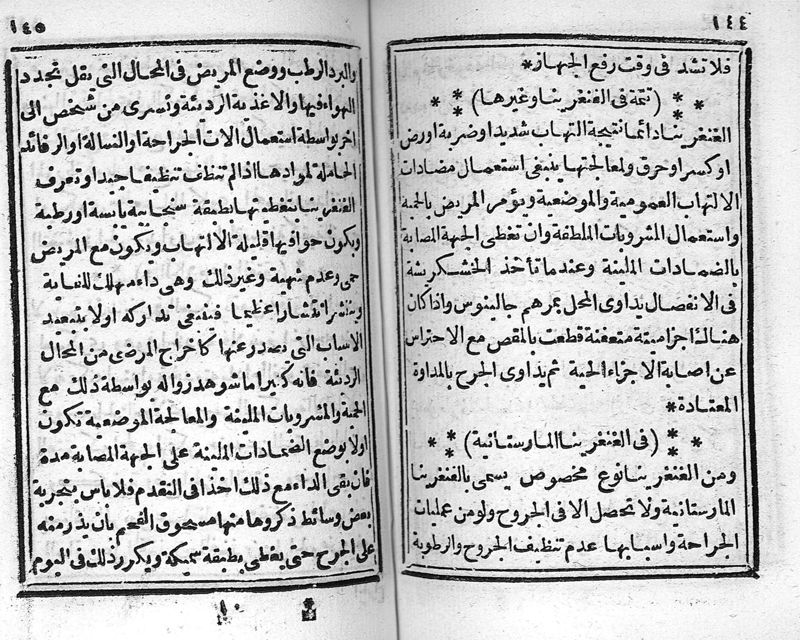 ١٤٤
فلا تشد فى وقت رفع الجهاز *
* * (تتمة فى الغنغرينا وغيرها) * *
الغنغرينا دائما نتيجة التهاب شديد او ضربة او رض
او كسر او حرق ولمعالجتها ينبغى استعمال مضادات
الالتهاب العمومية والموضعية ويؤمر المريض بالحمية
واستعمال المشروبات الملطفة وان تغطى الجهة المصابة
بالضمادات الملينة وعندما تأخذ الخشكريشة
فى الانفصال يداوى المحل بمرهم جالينوس واذا كان
هناك اجزاميتة متعفنة قطعت بالمقص مع الاحتراس
عن اصابة الاجزاء الحية ثم يداوى الجرح بالمداوة
المعتادة *
* * (فى الغنغرينا المارستانية) * *
ومن الغنغرينا نوع مخصوص يسمى بالغنغرينا
المارستانية ولا تحصل الا فى الجروح ولو من عمليات
الجراحة واسبابها عدم تنظيف الجروح والرطوبة
١٤٥
والبرد الرطب ووضع المريض فى المحال التى يقل تجدد
الهواء فيها والاغذية الرديئة وتسرى من شخص الى
اخر بواسطة استعمال الات الجراحة او النسالة او الرفائد
الحاملة لموادها اذا لم تنظف تنظيفا جيدا وتعرف
الغنغرينا بتغطيتها بطبقة سنجابية يابسة او رطبة
ويكون حوافيها قليلة الالتهاب ويكون مع المريض
حمى وعدم شهية وغير ذلك وهى داء مهلك للغاية
انتشارا عظيما فينبغى تداركه اولا بتبعيد
الاسباب التى يصدر عنها كاخراج المرضى من المحال
الرديئة فانه كثيرا ما شوهد زواله بواسطة ذلك مع
الحمية والمشروبات الملينة والمعالجة الموضعية تكون
اولا بوضع الضمادات الملينة على الجهة المصابة مدة
فان بقى الداء مع ذلك اخذا فى التقدم فلا باس بتجربة
بعض وسائط ذكروها منها مسحوق الفحم بأن يذر منه
على الجرح حتى يغطى بطبقة سميكة ويكرر ذلك فى اليوم